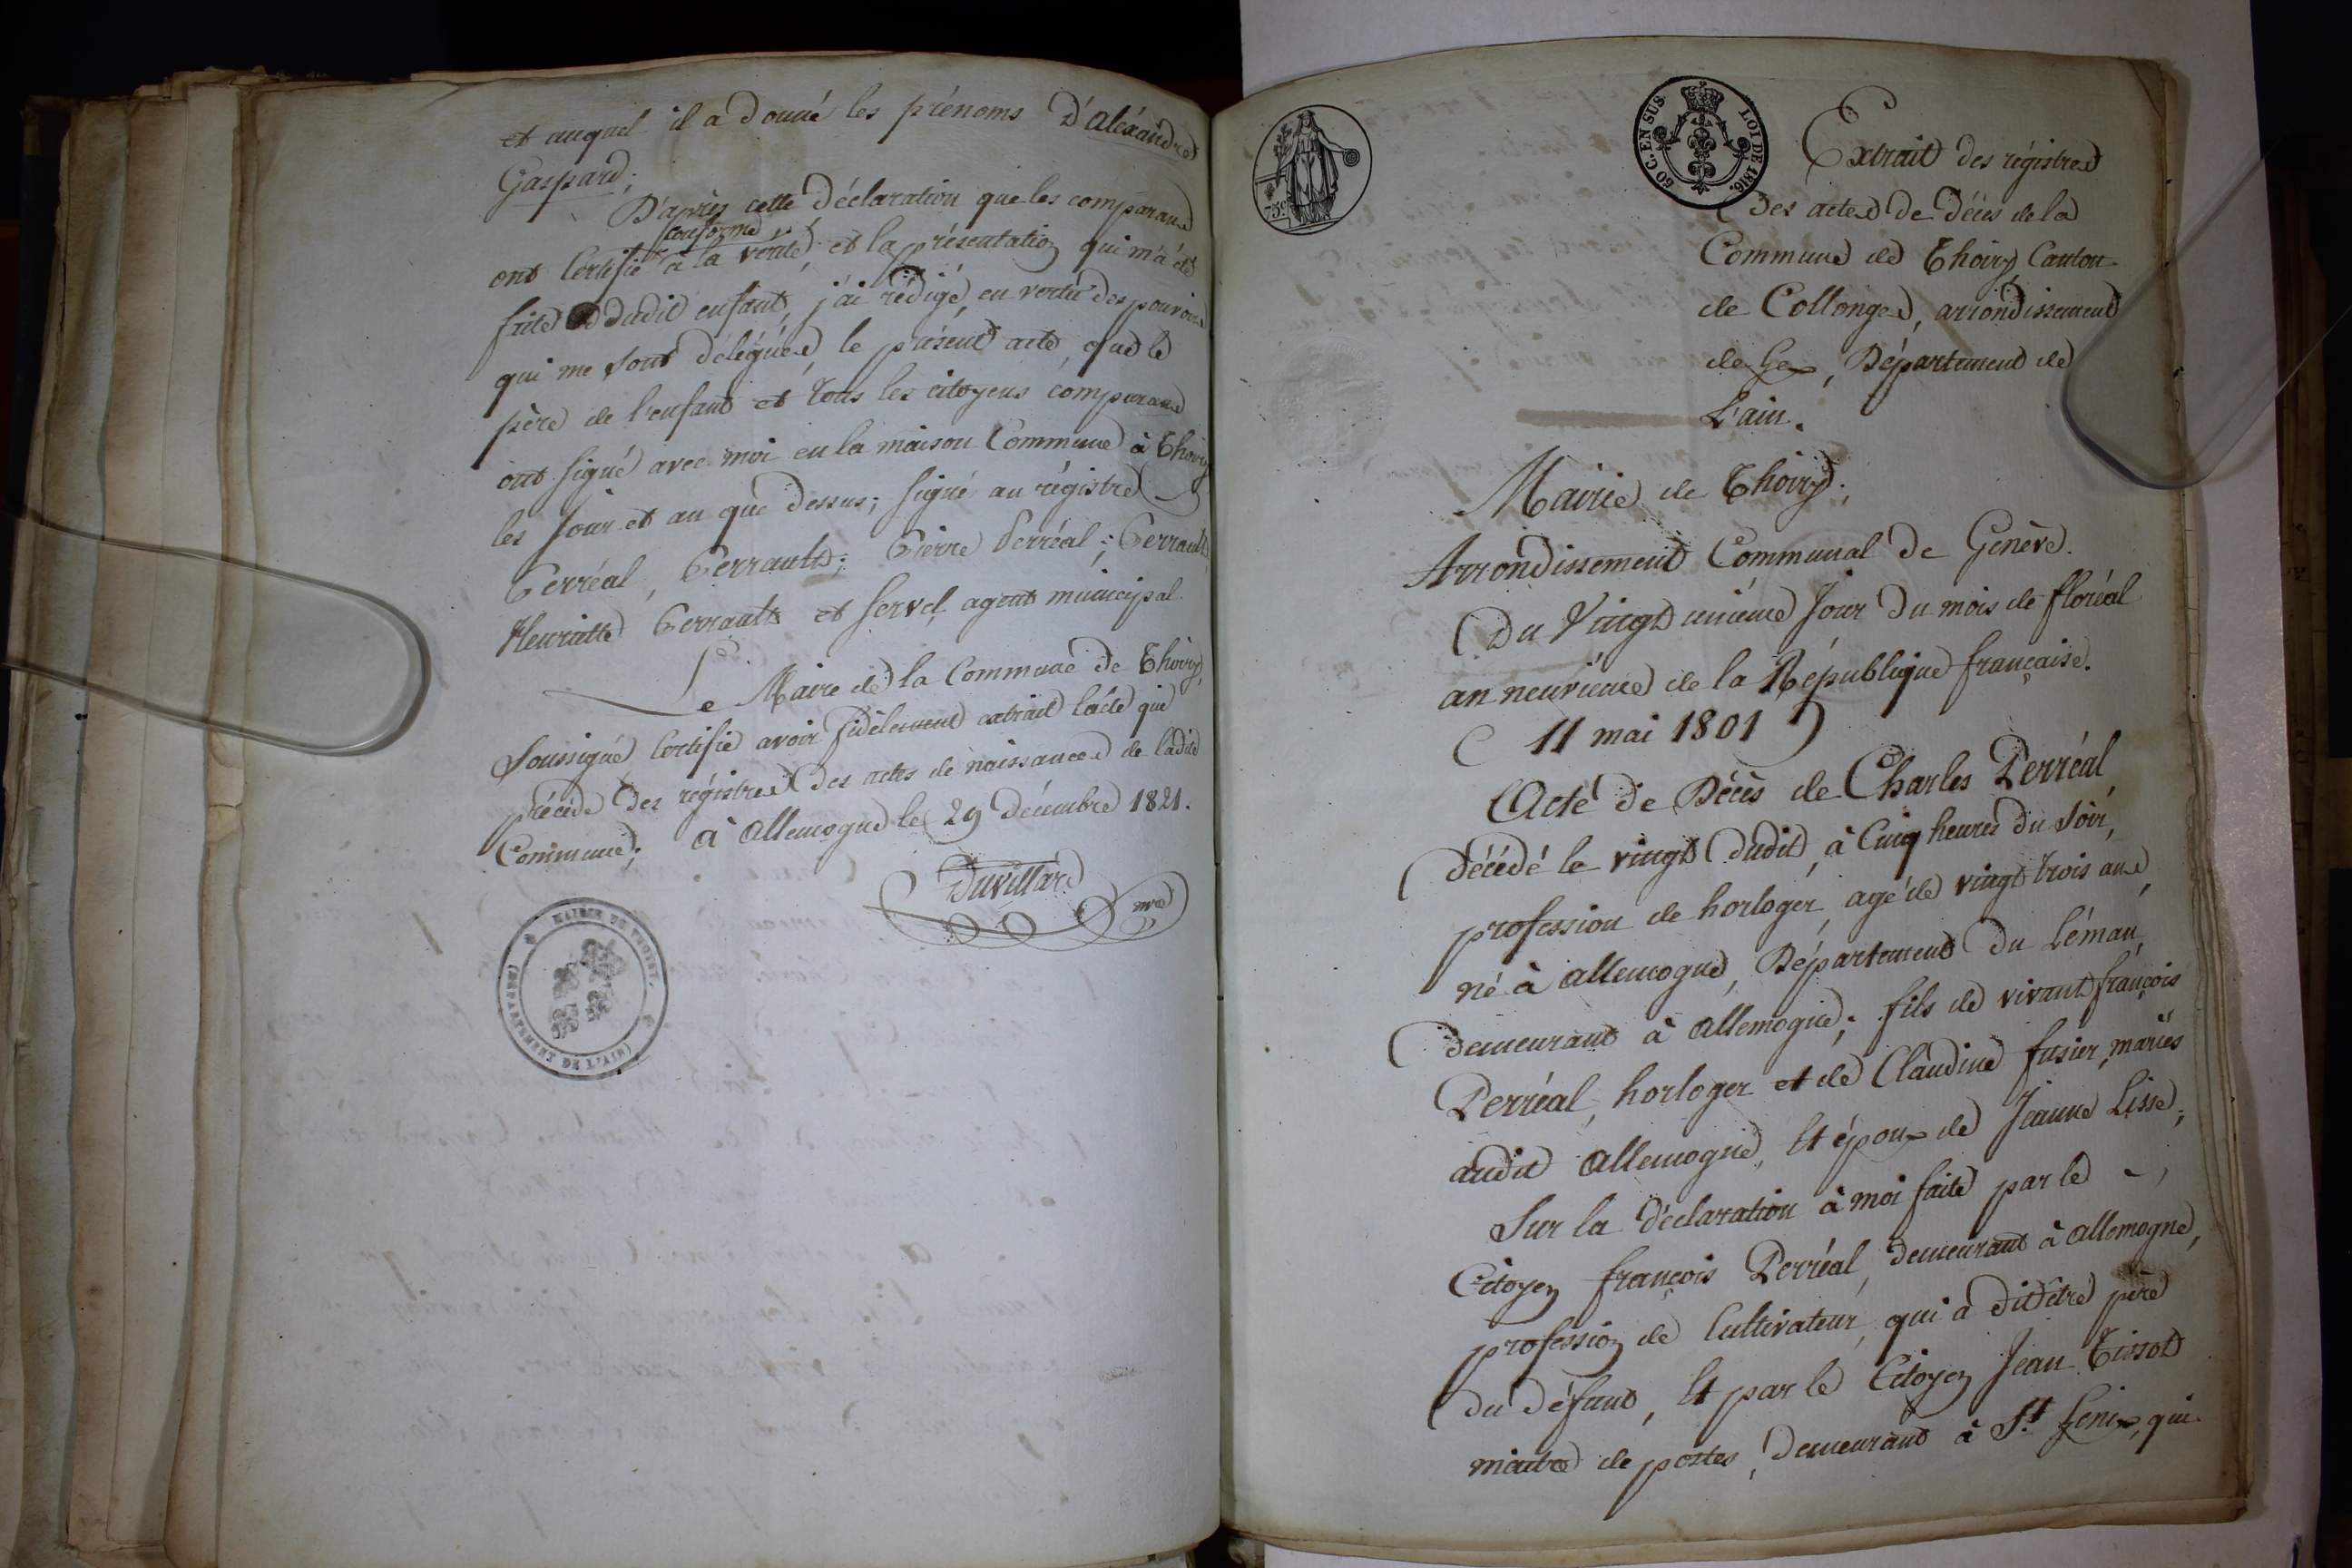 et auquel il a donné les prénoms d'aléxandre
Gaspard;
D'après cette déclaration que les comparans
conforme
ont Certifié à la vérité, et la présentation qui m'a été
faite dudit enfant, j'ai rédigé, en vertu des pouvoirs
qui me sont délégués, le présent acte, que le
père de l'enfant et tous les citoyens comparans
ont signé avec moi en la maison Commune à Thoiry
les jour et an que dessus; signé au régistre
Perréal, Perrault; Pierre Perréal; Perrault,
Henriette Perrault et Servel, agent municipal
Le Maire de la Commune de Thoiry,
Soussigné Certifie avoir fidèlement extrait l'acte qui
précède des régistres des actes de naissances de ladite
Commune; à Allemogne le 29 décembre 1821.
Duvillard
mre
MAIRIE DE THOIRY.
(DEPARTEMENT DE L'AIN)
75c
50 C. EN SUS
LOI DE 1816.
Extrait des régistres
des actes de décès de la
Commune de Thoiry, Canton
de Collonges, arrondissement
de Gex, Département de
L'ain.
Mairie de Thoiry;
Arrondissement Communal de Genève.
Du Vingt unième Jour du mois de floréal
an neuvième de la République française.
( 11 mai 1801 )
Acte de Décès de Charles Perréal,
décédé le vingt dudit, à Cinq heures du Soir,
profession de horloger, agé de vingt trois ans,
né à allemogne, Département du Léman,
demeurant à allemogne; fils de vivant françois
Perréal, horloger et de Claudine fusier, mariés
audit allemogne, Et époux de Jeanne Lisse;
Sur la déclaration à moi faite par le -
Citoyen françois Perréal, demeurant à allemogne,
profession de Cultivateur, qui a dit être père
du défunt, Et par le Citoyen Jean Tissot
maitre de postes, demeurant à St. Genix, qui